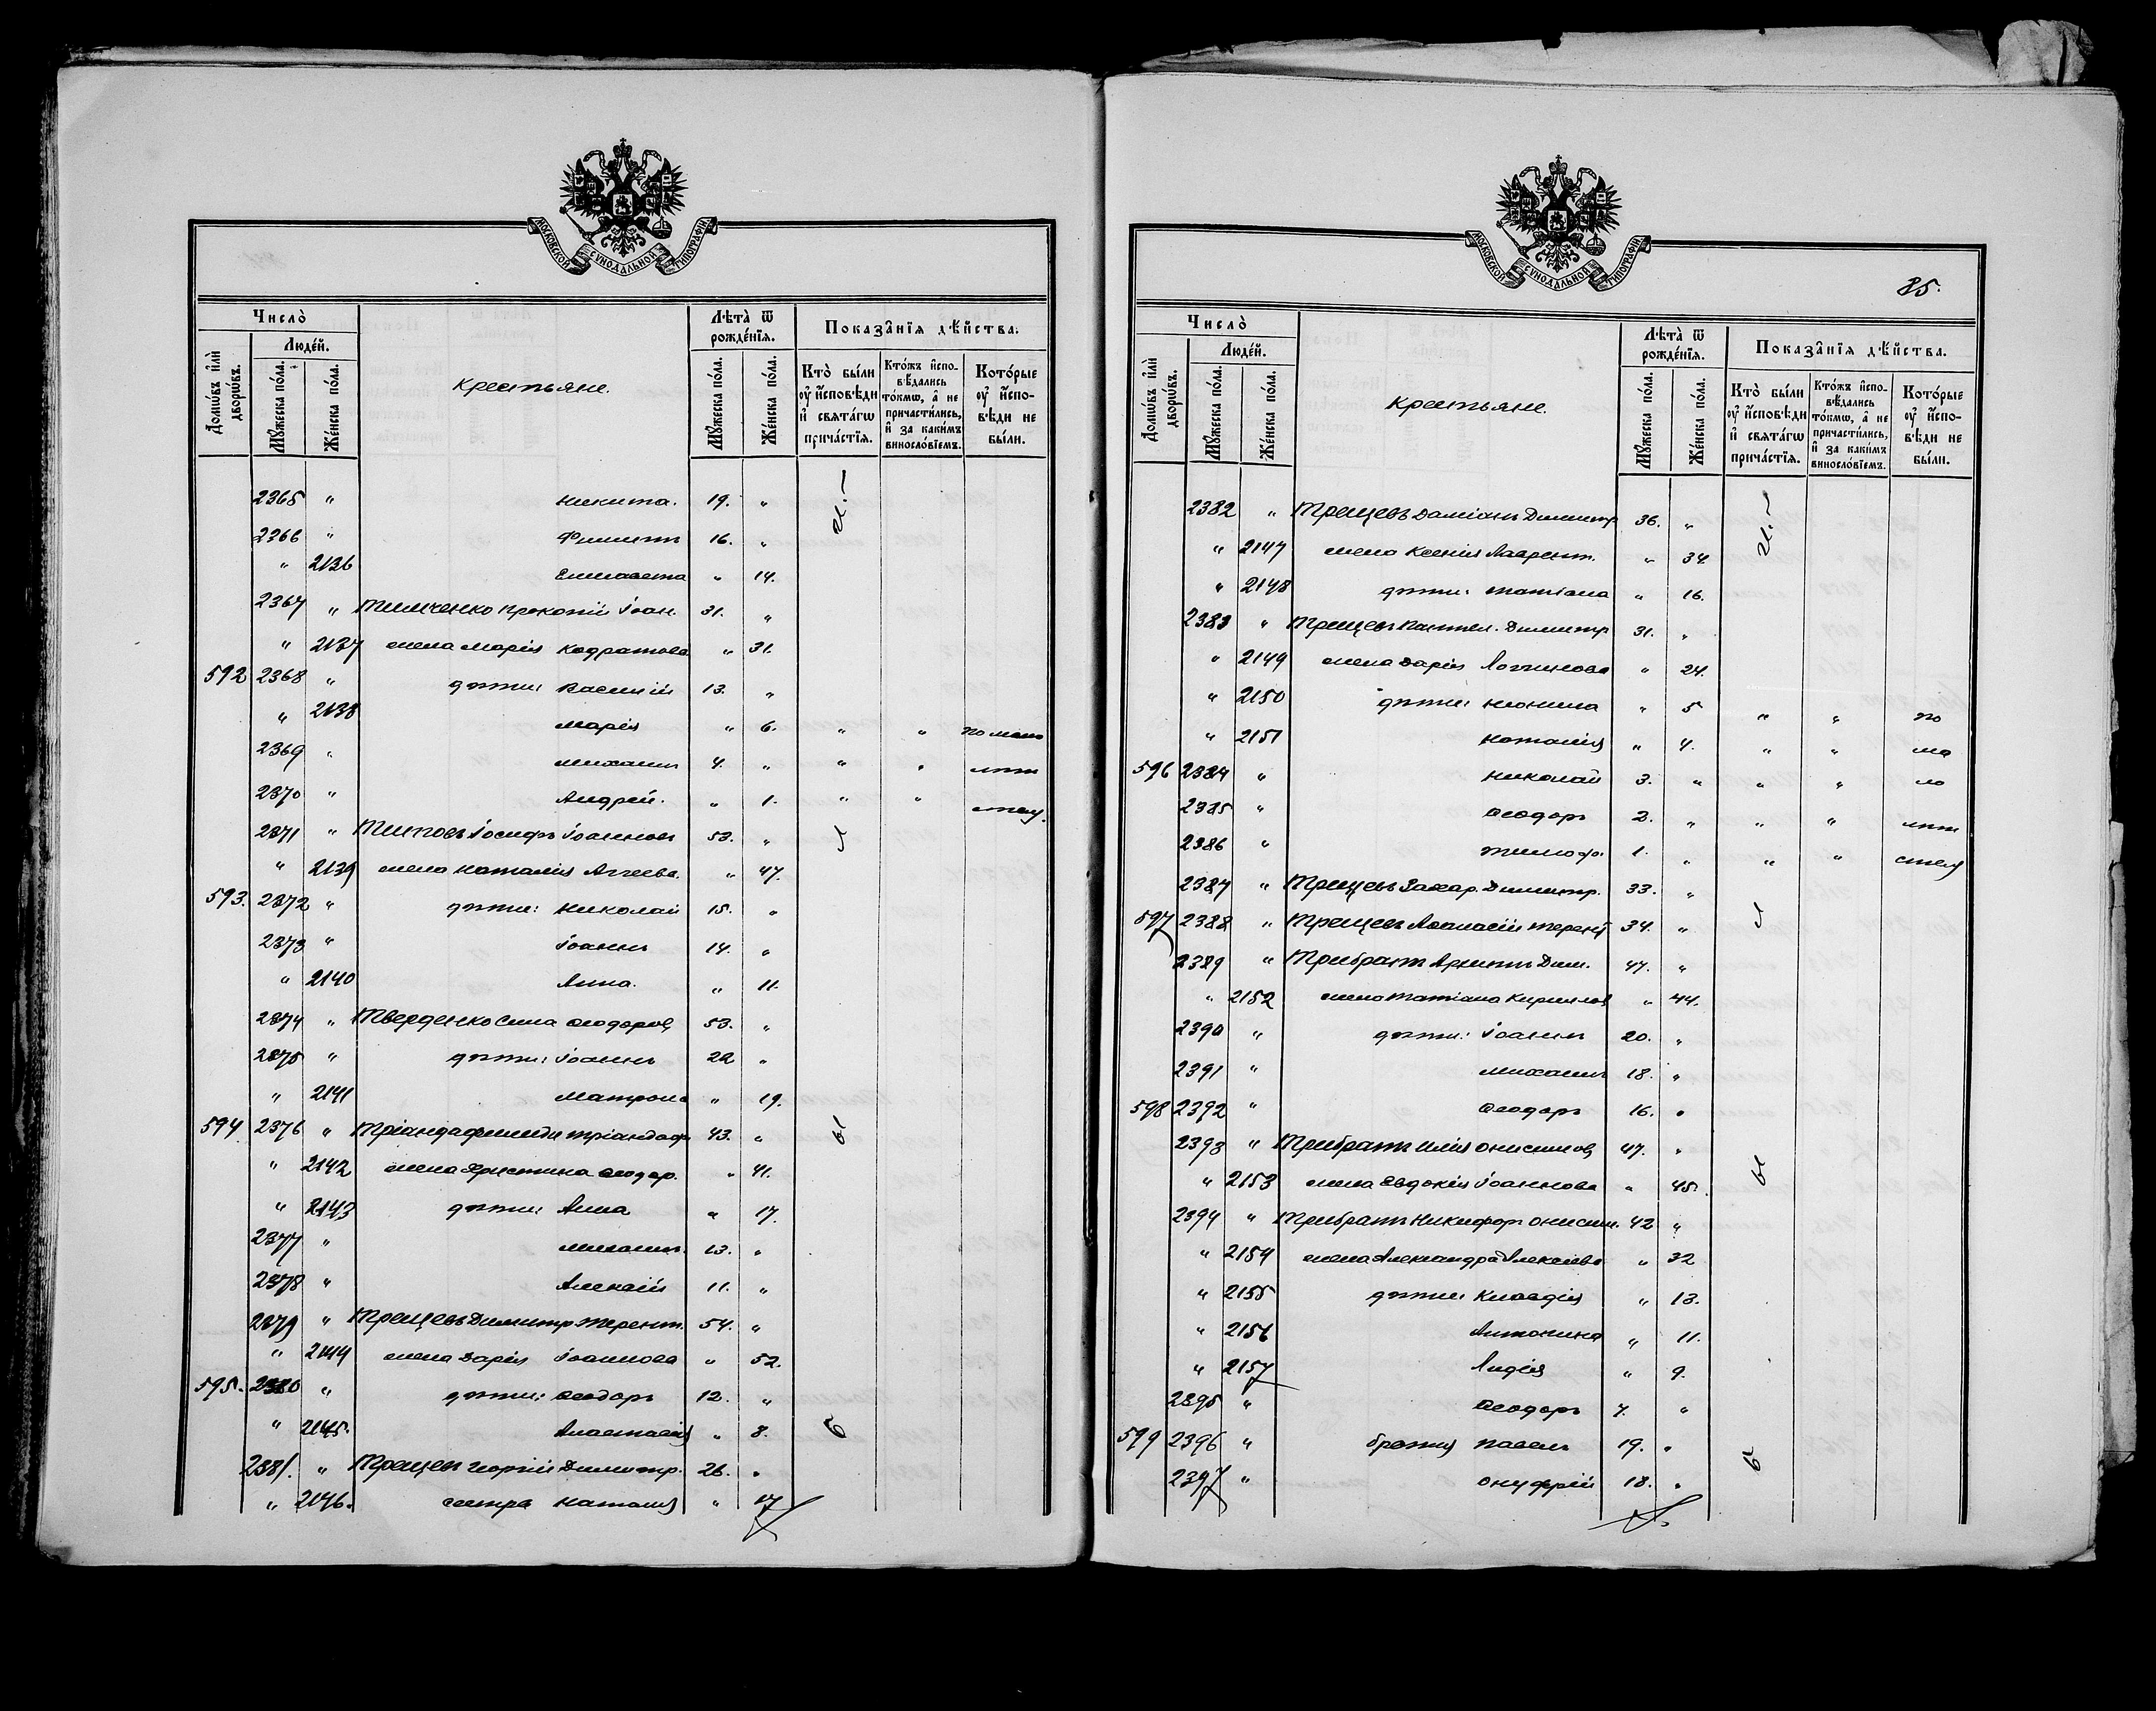 МОСКОВСКОЙ СѴНОДАЛЬНОЙ ТИПОГРАФІИ
Число̀
Люде́й.
Домѡ́въ и҆лѝ дворѡ́въ.
Мꙋ́жеска по́ла.
Же́нска по́ла.
Крестьяне.
Лѣта̀ ѿ рожде́нїѧ.
Мꙋ́жеска по́ла.
Же́нска по́ла.
Показа̑нїѧ дѣ́йства.
Кто̀ бы́ли ᲂу҆ и҆сповѣ́ди и҆ свѧта́гѡ прича́стїѧ.
Кто́жъ и҆сповѣ́дались то́кмѡ, а҆ не причасти́лись, и҆ за каки́мъ винословїемъ.
Кото́рые ᲂу҆ и҆сповѣ́ди не бы́ли.
2365 " Никита. 19. "
2366 " Филиппъ 16. "
" 2136 Елисавета " 14.
2367 " Тимченко Прокопій Іоан. 31. "
" 2137 жена Марія Кодратова " 31.
592 2368 " дѣти: Василій 13. "
" 2138 Марія " 6. " " по мало
2369 " Михаилъ 4. " " " лѣт
2370 " Андрей. " 1. " " ству.
2371 " Титовъ Іосифъ Іоанновъ 53. "
" 2139 жена Наталія Аггеева. " 47.
593. 2372 " дѣти: Николай 15. "
2373 " Іоаннъ 14. "
" 2140 Анна. " 11.
2374 " Тверденко Сила Ѳеодоров 53. "
2375 " дѣти: Іоаннъ 22 "
" 2141 Матрона " 19.
594 2376 " Тріандафилиди Тріандаф. 43. "
" 2142 жена Христина Ѳеодор. " 41.
" 2143 дѣти Анна " 17.
2377 " Михаилъ. 13. "
2378 " Алексій 11. "
2379 " Трещевъ Димитр. Терент. 54. "
" 2144 жена Дарія Іоаннова " 52.
595. 2380 " дѣти: Ѳеодоръ 12. "
" 2145. Анастасія " 8.
2381. " Трещевъ Георгій Димитр. 26. "
" 2146. сестра Наталія " 17
МОСКОВСКОЙ СѴНОДАЛЬНОЙ ТИПОГРАФІИ
85.
Число̀
Люде́й.
Домѡ́въ и҆лѝ дворѡ́въ.
Мꙋ́жеска по́ла.
Же́нска по́ла.
Крестьяне.
Лѣта̀ ѿ рожде́нїѧ.
Мꙋ́жеска по́ла.
Же́нска по́ла.
Показа̑нїѧ дѣ́йства.
Кто̀ бы́ли ᲂу҆ и҆сповѣ́ди и҆ свѧта́гѡ прича́стїѧ.
Кто́жъ и҆сповѣ́дались то́кмѡ, а҆ не причасти́лись, и҆ за каки́мъ винословїемъ.
Кото́рые ᲂу҆ и҆сповѣ́ди не бы́ли.
2382 " Трещевъ Даміанъ Димитр 36. "
" 2147 жена Ксенія Лаврент. " 34.
" 2148 дѣти: Татіана " 16.
2383 " Трещевъ Пантел. Димитр 31. "
" 2149 жена Дарія Логгинова " 24.
" 2150 дѣти: Неонила " 5 " " по
" 2151 Наталія " 4. " " ма
596 2384 " Николай 3. " " " ло
2385 " Ѳеодоръ 2. " " " лѣт
2386 " Тимоф. 1. " " " ству
2387 " Трещевъ Захар. Димитр. 33. "
597 2388 " Трещевъ Аѳанасій Терент 34. "
2389 " Трибратъ Архиппъ Дим. 47. "
" 2152 жена Татіана Кириллов " 44.
2390 " дѣти: Іоаннъ 20. "
2391 " Михаилъ 18. "
598 2392 " Ѳеодоръ 16. "
2393 " Трибратъ Илія Онисимов 47. "
" 2153 жена Евдокія Іоаннова " 45.
2394 " Трибратъ Никифоръ Онисим. 42 "
" 2154 жена Александра Алексіева " 32
" 2155 дѣти: Клавдія " 13.
" 2156 Антонина " 11.
" 2157 Лидія " 9.
2395 " Ѳеодоръ 7. "
599 2396 " братья Павелъ 19. "
2397 " Онуфрій 18. "